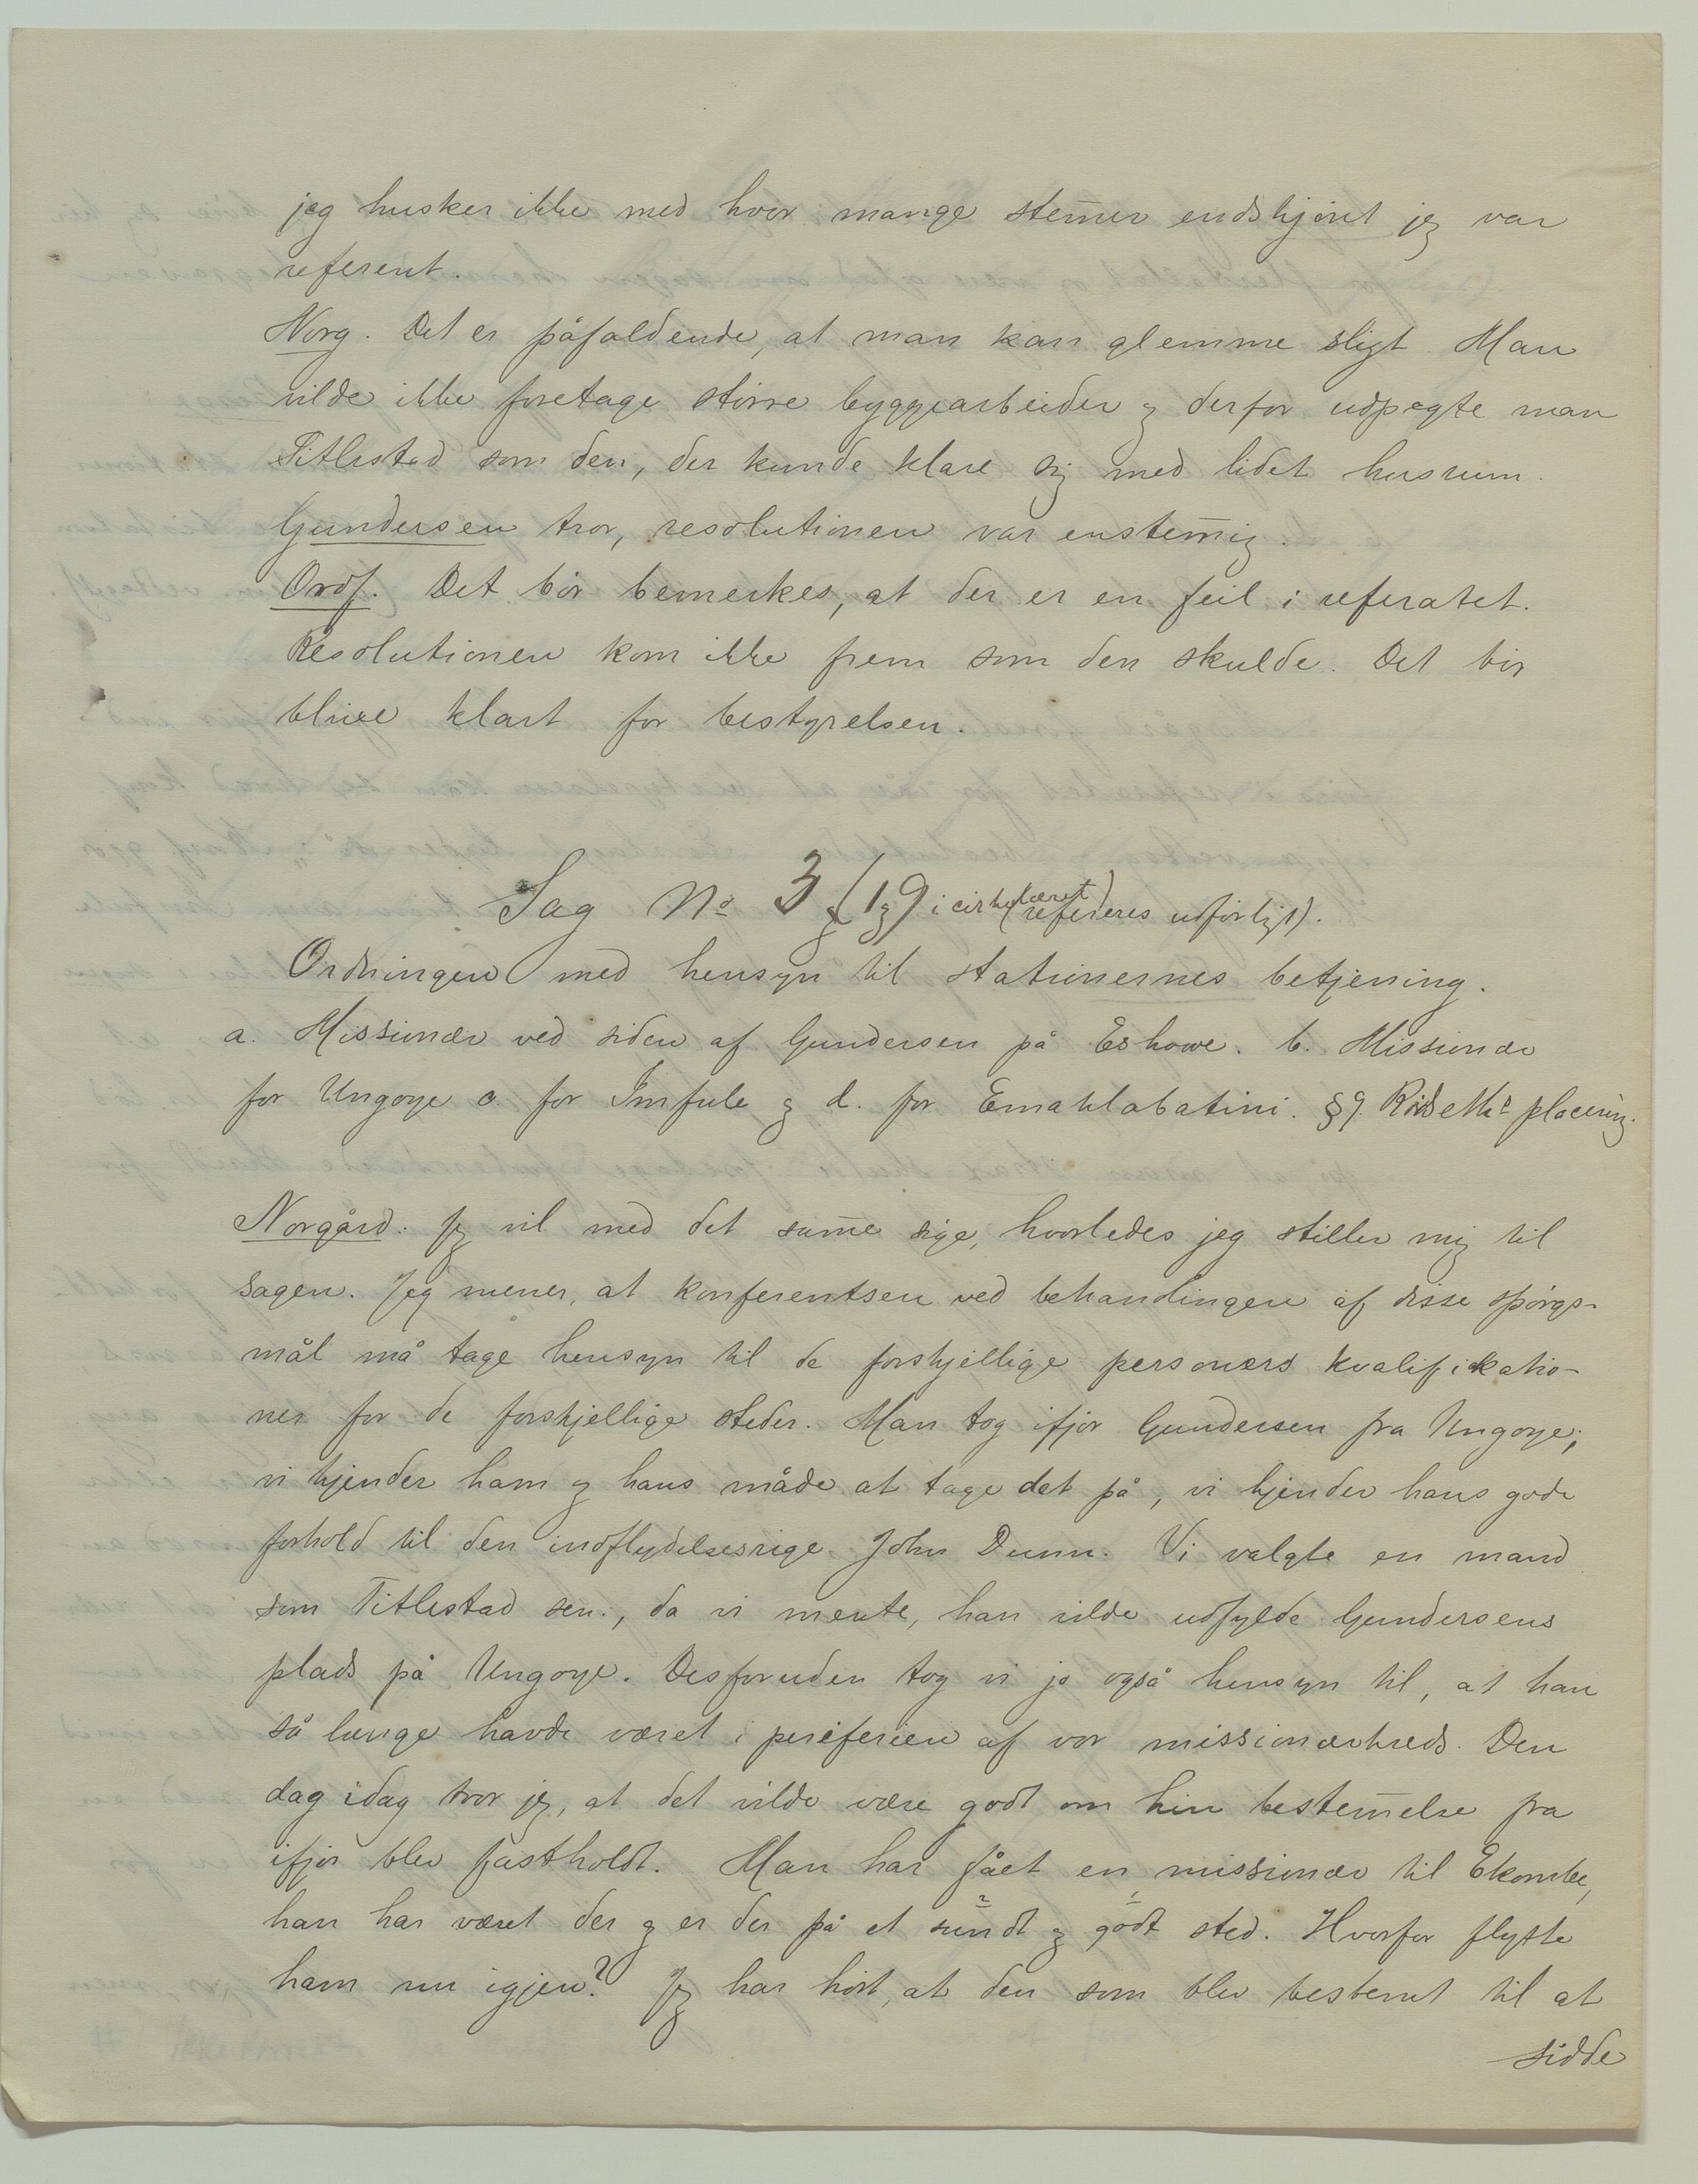 jeg husker ikke med hvor mange stem̄er endskjønt jeg var
referent.
Norg. Det er påfaldende, at man kan glemme sligt. Man
vilde ikke foretage større byggearbeider og derfor udpegte man
Titlestad som den, der kunde klare sig med lidet husrum.
Gundersen tror, resolutionen var enstem̄ig.
Ordf. Det bør bemerkes, at der er en feil i referatet.
Resolutionen kom ikke frem som den skulde. Det bør
blive klart for bestyrelsen.
Sag No 3 (1 og 9 i cirkulæret) (refereres udførligt).
Ordningen med hensyn til stationernes betjening.
a. Missionær ved siden af Gundersen på Eshowe. b. Missionær
for Ungoye c. for Imfule og d. for Emahlabatini. §9. placering.
Norgård: Jeg vil med det sam̄e sige, hvorledes jeg stiller mig til
sagen. Jeg mener, at konferentsen ved behandlingen af disse spørgs-
mål må tage hensyn til de forskjellige personers kvalifikatio-
ner for de forskjellige steder. Man tog ifjor Gundersen fra Ungoye;
vi kjender ham og hans måde at tage det på, vi kjender hans gode
forhold til den indflydelsesrige John Dunn. Vi valgte en mand
som Titlestad sen., da vi mente, han vilde udfylde Gundersens
plads på Ungoye. Desforuden tog vi jo også hensyn til, at han
så længe havde været i periferien af vor missionærkreds. Den
dag idag tror jeg, at det vilde være godt om hin bestem̄else fra
ifjor blev fastholdt. Man har fået en missionær til Ekombe,
han har været der og er der på et sundt og godt sted. Hvorfor flytte
ham nu igjen? Jeg har hørt, at den som blev bestemt til at
sidde